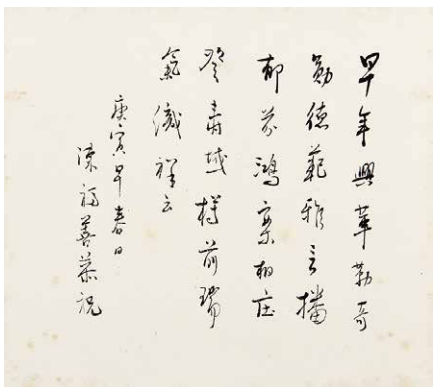 早年興革勒奇
勳德範雅言播
郁芬鴻案相庄
登壽域樽前瑞
氣織祥云
庚寅早春日
陳福善恭祝